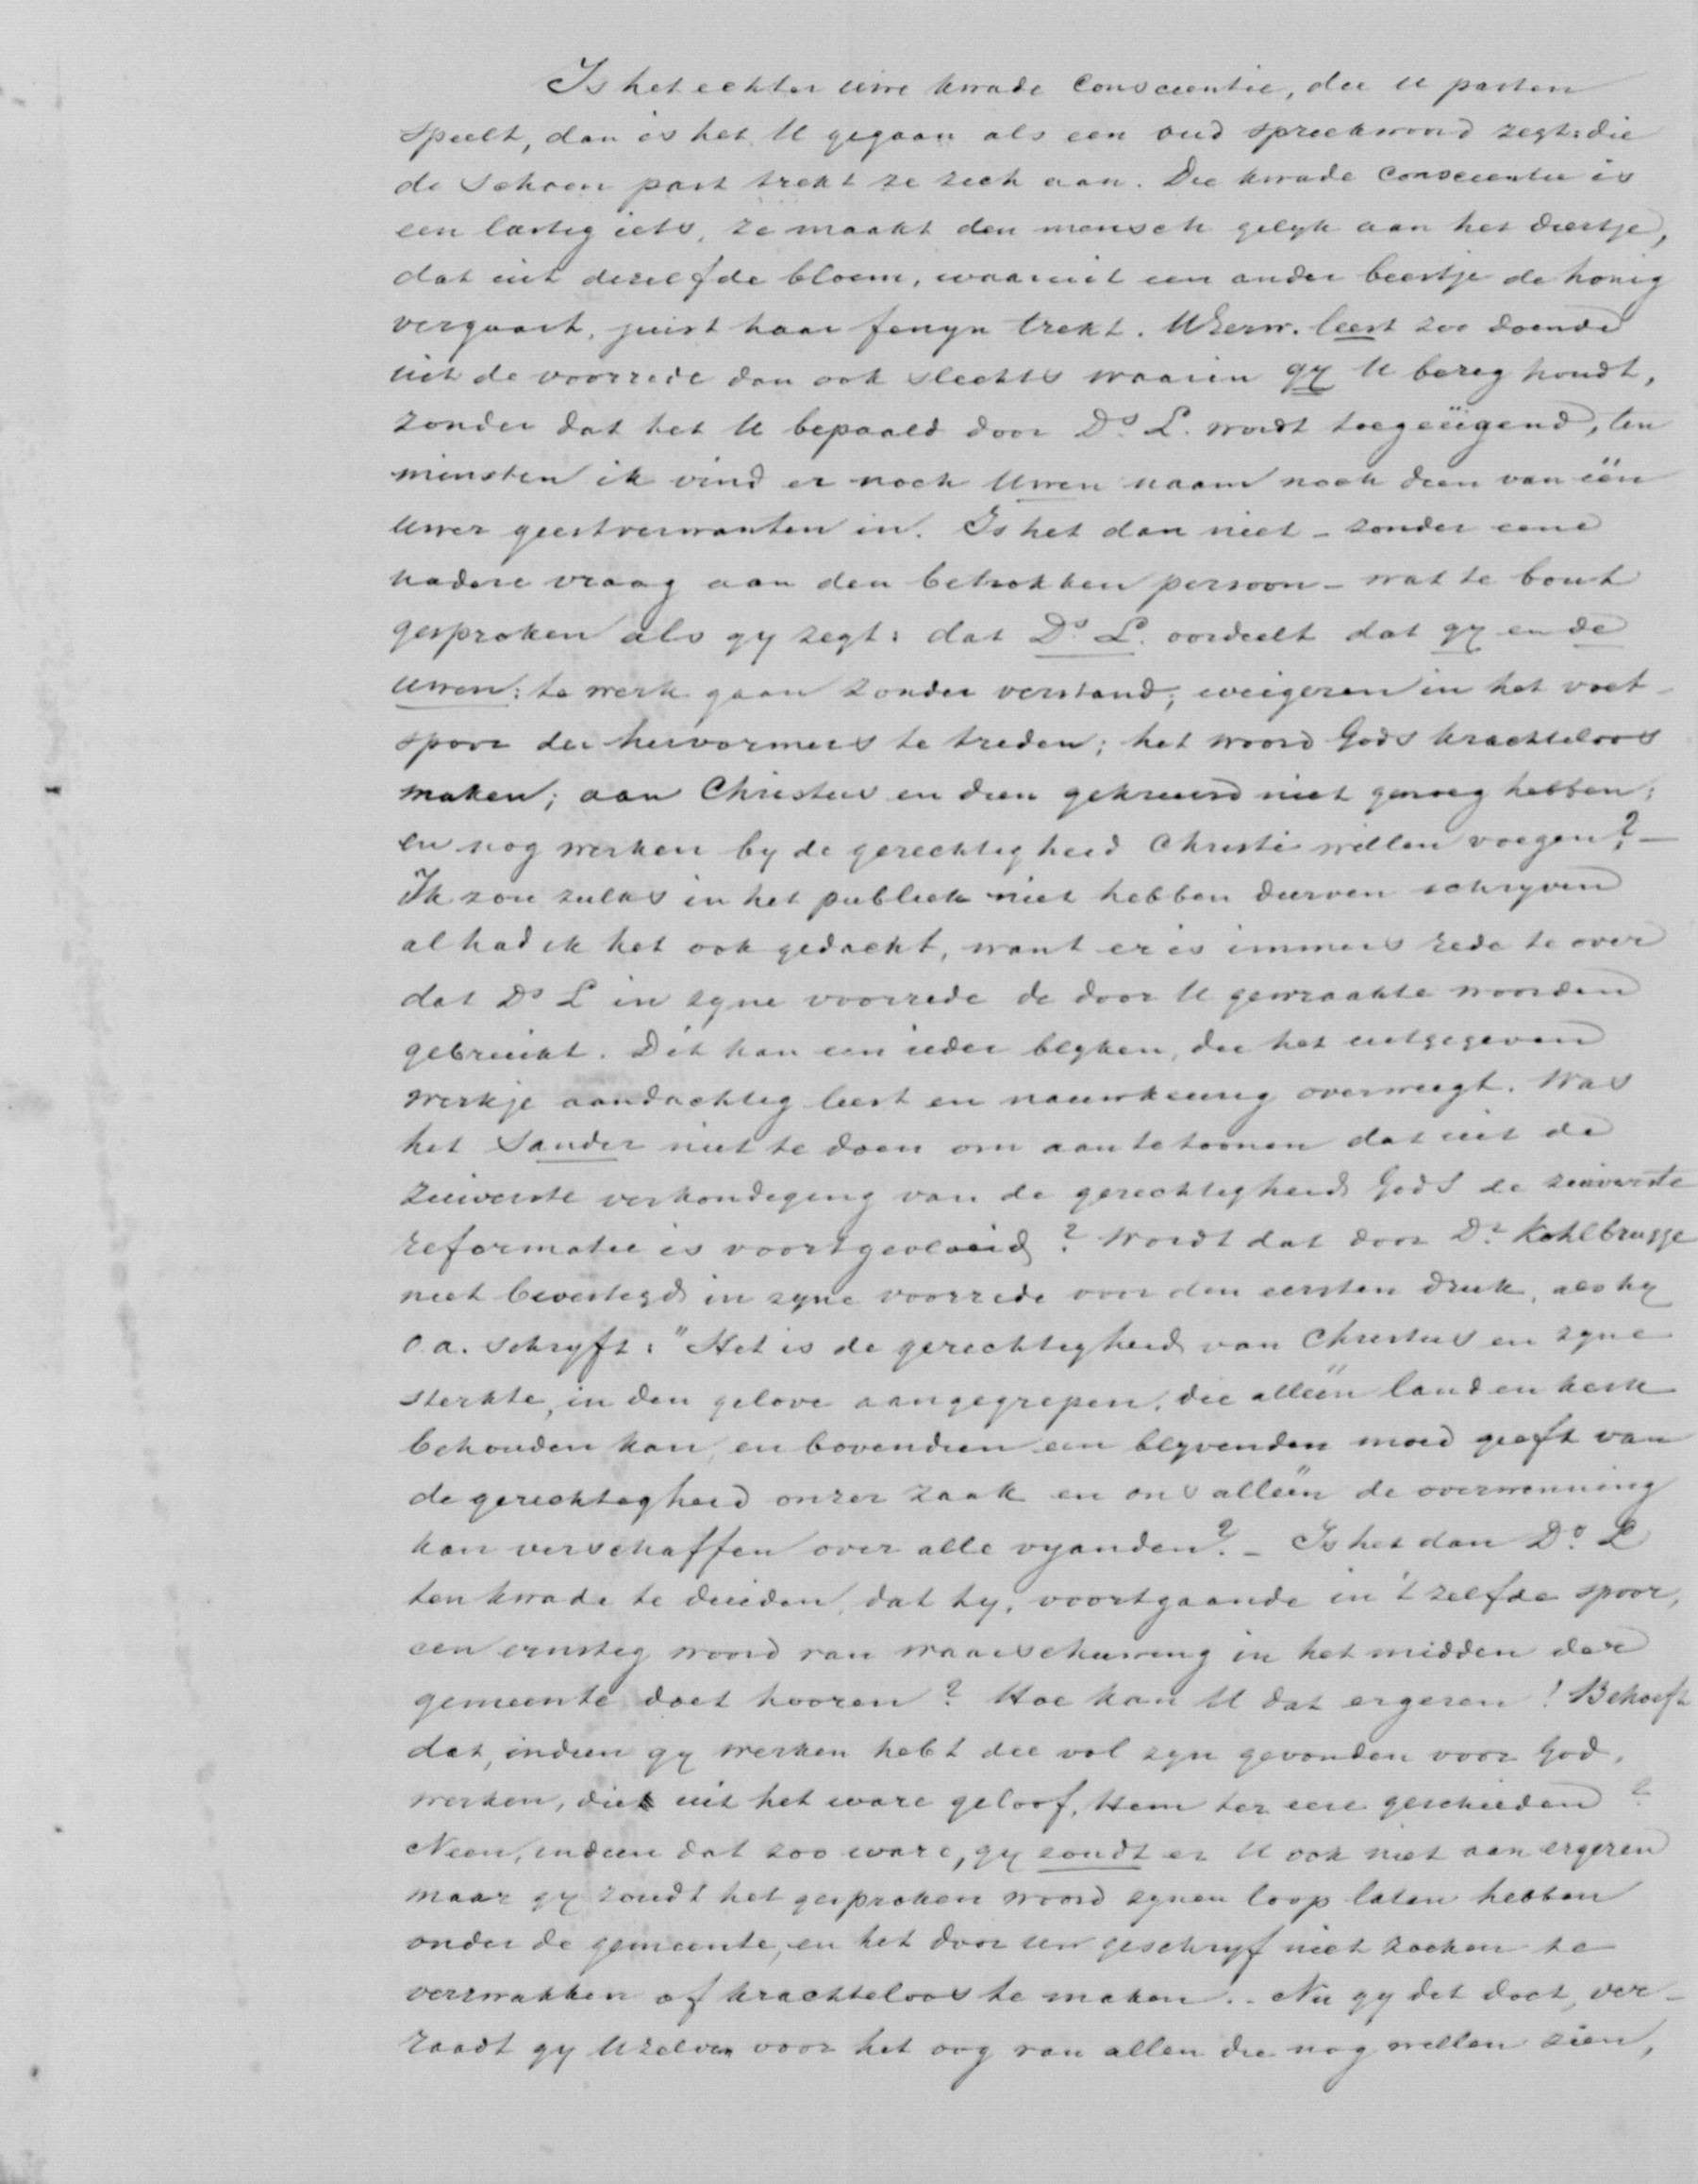 Is het echter uwe kwade Conscientie, die U parten
speelt, dan is het U gegaan als een oud spreekwoord zegt: die
de Schoen past trekt ze zich aan. Die kwade Conscientie is
een lastig iets, ze maakt den mensch gelyk aan het diertje,
dat uit dezelfde bloem, waaruit een ander beestje de honig
vergaart, juist haar fenyn trekt. UEerw. leest zoo doende
uit de voorrede dan ook slechts waarin gy U bezig houdt,
zonder dat het U bepaald door Ds. L. wordt toegeëigend, ten
minsten ik vind er noch Uwen naam noch dien van één
Uwer geestverwanten in. Is het dan niet - zonder eene
nadere vraag aan den betrokken persoon - wat te bout
gesproken als gy zegt: dat Ds. L. oordeelt dat gy en de
Uwen: te werk gaan zonder verstand; weigeren in het voet-
spoor der hervormers te treden; het woord Gods krachteloos
maken; aan Christus en dien gekruisd niet genoeg hebben;
en nog werken by de gerechtigheid Christi willen voegen? -
Ik zou zulks in het publiek niet hebben durven schryven
al had ik het ook gedacht, want er is immers rede te over
dat Ds L in zyne voorrede de door U gewraakte woorden
gebruikt. Dit kan een ieder blyken, die het uitgegeven
werkje aandachtig leest en nauwkeurig overweegt. Was
het Sander niet te doen om aan te toonen dat uit de
zuiverste verkondiging van de gerechtigheid Gods de zuiverste
reformatie is voortgevloeid? Wordt dat door Dr. Kohlbrugge
niet bevestigd in zyne voorrede voor den eersten druk, als hy
o.a. schryft: "Het is de gerechtigheid van Christus en zyne
sterkte, in den gelove aangegrepen, die alleen land en kerk
behouden kan, en bovendien een blyvenden moed geeft van
de gerechtigheid onzer zaak en ons alleen de overwinning
kan verschaffen over alle vyanden? - Is het dan Ds. L
ten kwade te duiden, dat hy, voortgaande in 't zelfde spoor,
een ernstig woord van waarschuwing in het midden der
gemeente doet hooren? Hoe kan U dat ergeren! Behoeft
dat, indien gy werken hebt die vol zyn gevonden voor God,
werken, die uit het ware geloof, Hem ter eere geschieden?
Neen, indien dat zoo ware, gy zoudt er U ook niet aan ergeren
maar gy zoudt het gesproken woord zynen loop laten hebben
onder de gemeente, en het door uw geschryf niet zoeken te
verzwakken of krachteloos te maken. - Nu gy dit doet, ver-
raadt gy Uzelven voor het oog van allen die nog willen zien,